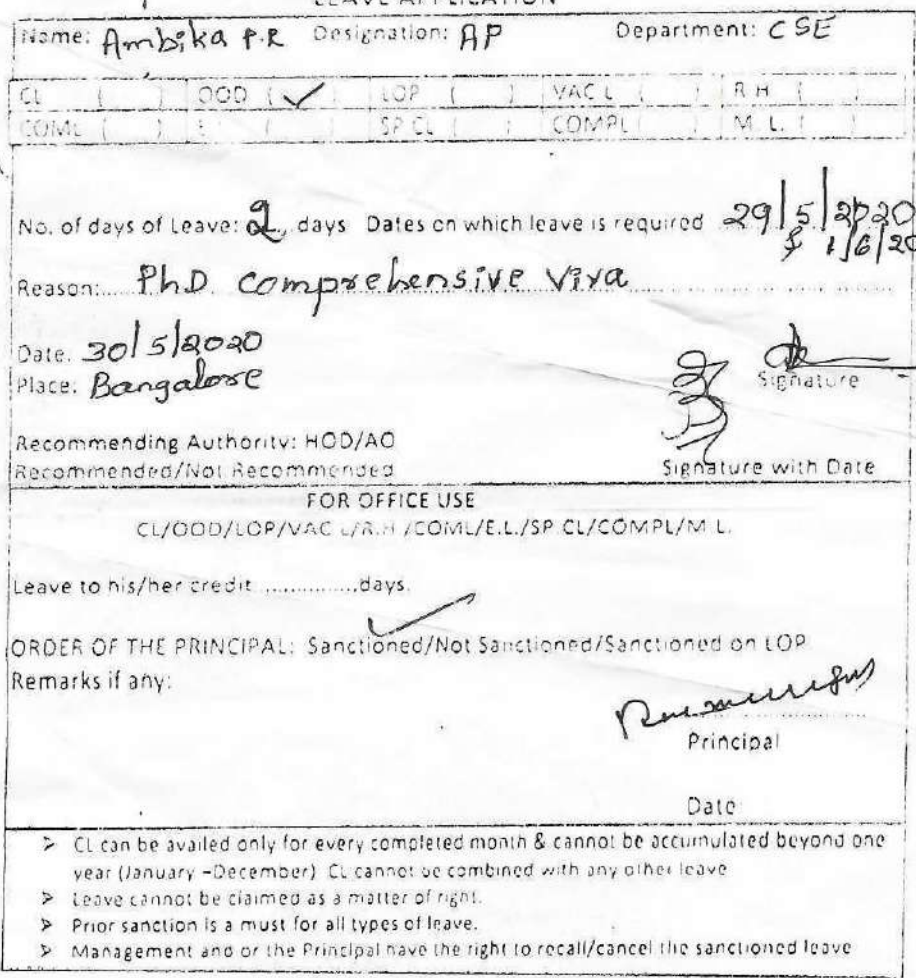 LEAVE APPLICATION
Name: Ambika P.R Designation: AP Department: CSE
CL ( ) OOD (✓) LOP ( ) VAC L ( ) R.H ( )
COML ( ) E ( ) SP CL ( ) COMPL ( ) M.L. ( )
No. of days of Leave: 2 days Dates on which leave is required 29/5/2020
& 1/6/20
Reason: PhD comprehensive Viva
Date. 30/5/2020
Place: Bangalore
Signature
Recommending Authority: HOD/AO
Recommended/Not Recommended Signature with Date
FOR OFFICE USE
CL/OOD/LOP/VAC L/R.H /COML/E.L./SP CL/COMPL/M L.
Leave to his/her credit ..............days.
ORDER OF THE PRINCIPAL: Sanctioned/Not Sanctioned/Sanctioned on LOP
Remarks if any:
Principal
Date
➢ CL can be availed only for every completed month & cannot be accumulated beyond one
year (January –December) CL cannot be combined with any other leave
➢ Leave cannot be claimed as a matter of right.
➢ Prior sanction is a must for all types of leave.
➢ Management and or the Principal have the right to recall/cancel the sanctioned leave